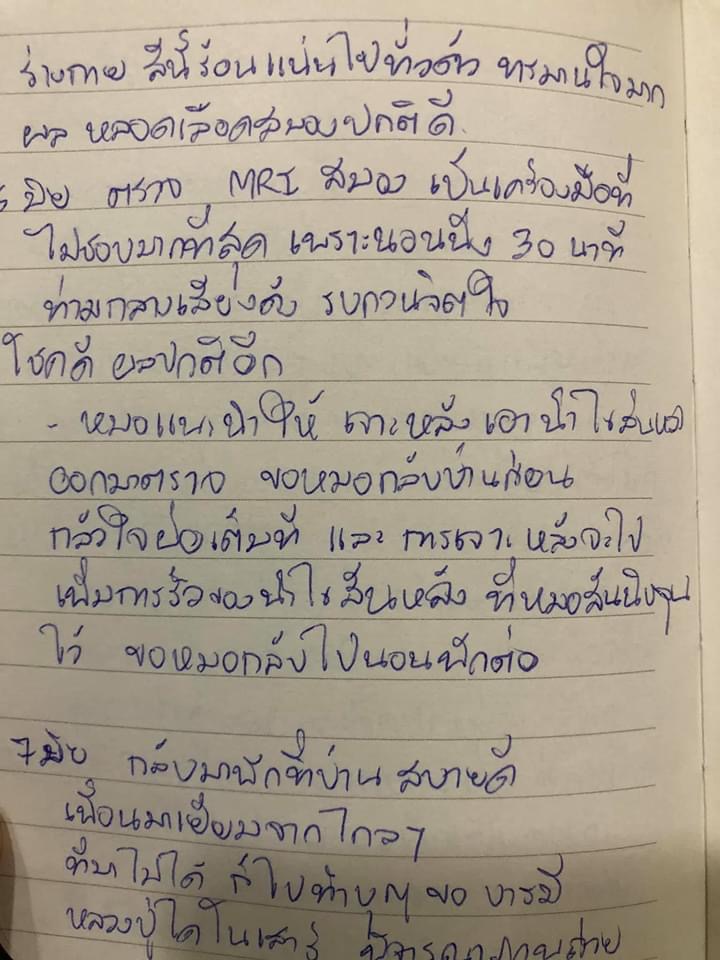 ร่างกาย สีนี้ร้อนแน่นไปทั่วตัว ทรมานใจมาก
ผล หลอดเลือดสมองปกติดี.
มิย ตรวจ MRI สมอง เป็นเครื่องมือที่
ไม่ชอบมากที่สุด เพราะนอนนิ่ง 30 นาที
ท่ามกลางเสียงดัง รบกวนจิตใจ
โชคดี ผลปกติอีก
- หมอแนะนำให้ เจาะหลัง เอาน้ำไขสันหลัง
ออกมาตรวจ ขอหมอกลับบ้านก่อน
กลัวใจฝ่อเต็มที และ การเจาะหลังจะไป
เพิ่มการรั่วของน้ำไขสันหลัง ที่หมอสันนิษฐาน
ไว้ ขอหมอกลับไปนอนพักต่อ
7 มิย กลับมาพักที่บ้าน สบายดี
เพื่อนมาเยี่ยมจากไกลๆ
ที่มาไม่ได้ ก็ไปทำบุญ ขอ บารมี
หลวงปู่